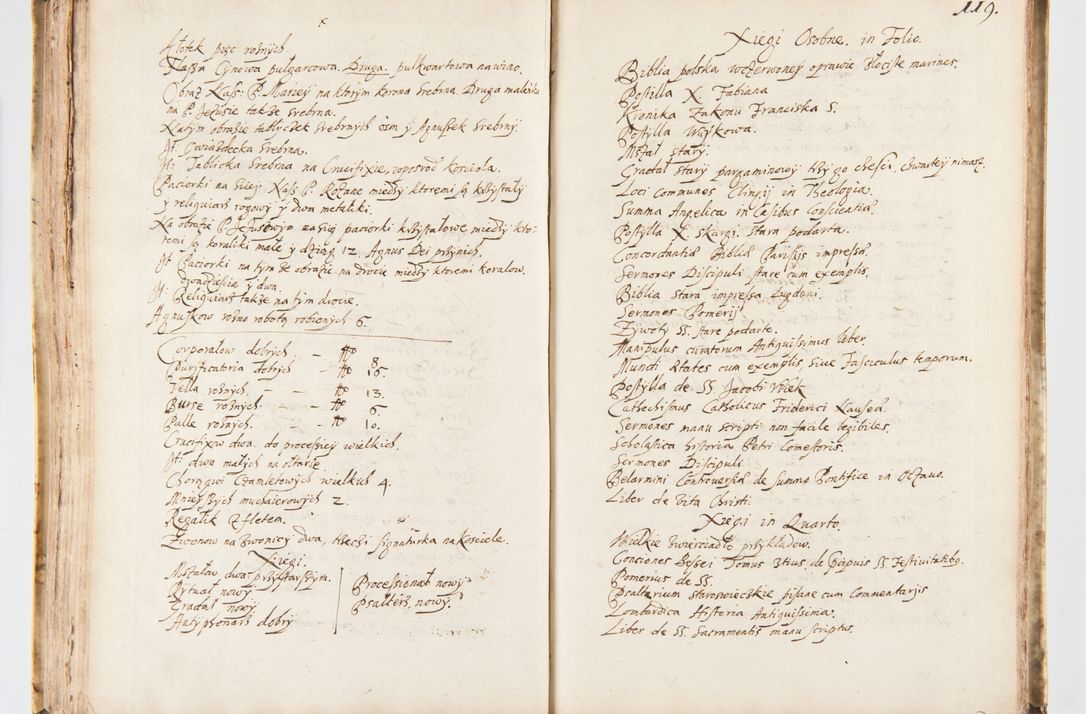 Flaszá Cynowa pułgarcowa. Druga. pułkwartowa na wino.
Obraz Naś: P. Mariey na ktorym korona srebrna. Druga maleńka
na P. Jezusie także srebrna.
Na tym obrazie tabliczek srebrnych ośm y Agnusek srebrny.
It. Gwiazdecka srebrna.
It. Tablicka srebrna na Crucifixie, wpośrod kościoła.
Paciorki na sziey Naś: P. Rożane między ktoremi są krzystały
y reliquiarz rogowy y dwa metaliki.
Na obrazie P. Jezusowym na szyi paciorki krzystałowe między kto-
remi są koraliki małe y dzięg 12. Agnus Dei przy nich.
It. Paciorki na tym że obrazie na drocie między ktoremi koralow.
dwadziescia y dwa.
It. Reliquiarz także na tym drocie.
Agnuskow rożno robotą robionych 6.
Corporałow dobrych — № 8.
Purificatoria dobrych — № 16.
Vella rożnych. — — № 13.
Burse rożnych. — № 6.
Palle rożnych. — № 10.
Crucifixow dwa. do processiey wielkich.
It. dwa małych na ołtarze.
Chorągwi Czamletowych wielkich 4.
Mnieyszych muchaierowych 2.
Regalik z fletem.
Zwonow na zwonicy dwa, trzeci signaturka na kościele.
Xięgi.
Mszałow dwa przystarszym.
Rytuał nowy
Graduał nowy
Antyphonarz dobry
Processionał nowy
Psałterz nowy.
119.
Xięgi Osobne. in Folio.
Biblia polska w czerwoney oprawie złociste marines.
Postilla X. Fabiana
Kronika Zakonu Franciska S.
Postylla Wuykowa.
Mszał stary.
Graduał stary pargaminowy trzy go części, czwartey nimasz.
Loci communes Clingij in Theologia.
Summa Angelica in Casibus Conscientiæ.
Postylla X. Skargi. stara podarta.
Concordantiæ Bibliæ Parisijs impressæ.
Sermones Discipuli stare cum exemplis.
Biblia stara impressa Lugduni.
Sermones Pomerij
Zywoty SS. stare podarte.
Manipulus curatorum Antiquissimus liber.
Mundi Ætates cum exemplis, siue Fasciculus temporum.
Postylla de SS. Jacobi Wiek
Cathechismus Catholicus Friderici Nauseæ.
Sermones manu scripti non facile legibiles.
Scholastica historia Petri Comestoris.
Sermones Discipuli.
Belarmini Controuersiæ de Summo Pontifice in Octauo.
Liber de Vita Christi.
Xięgi in Quarto.
Wielkie zwierciadło przykładow.
Conciones Tomus 3tius, de præcipuis SS. Festiuitatibq.
Pomerius de SS.
Psalterium staroswieczkie pisane cum commentarijs
Lombardica Historia Antiquissima.
Liber de SS. Sacramentis manu scriptus.